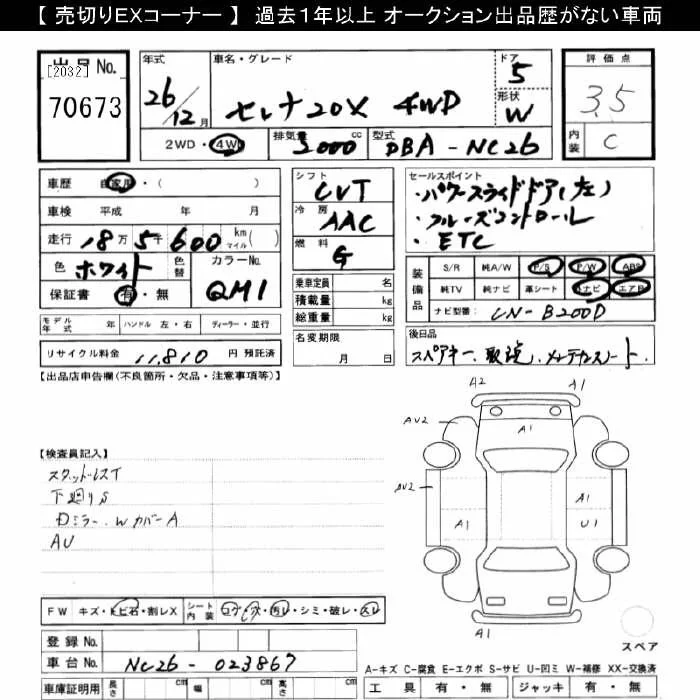 【 売切りEXコーナー 】 過去１年以上 オークション出品歴がない車両
出品 No. [2032] 70673
年式 26/12月
車名・グレード セレナ20X 4WD
ドア 5
形状 W
評価点 3.5
内装 C
2WD・4WD 排気量 2000 cc 型式 DBA-NC26
車歴 自家用・( )
車検 平成 年 月
走行 18万5千600 km マイル( )
色 ホワイト 色替 カラーNo. QM1
保証書 有・無
シフト CVT
冷房 AAC
燃料 G
乗車定員 名
積載量 kg
総重量 kg
名変期限 月 日
セールスポイント
・パワースライドドア(左)
・クルーズコントロール
・ETC
装備品 S/R 純A/W P/S P/W ABS
純TV 純ナビ 革シート ナビ エアB
ナビ型番: CN-B200D
モデル年式 年 ハンドル 左・右 ディーラー・並行
リサイクル料金 11,810 円 預託済
後日品
スペアキー、取説、メンテナンスノート、
【出品店申告欄(不良箇所・欠品・注意事項等)】
【検査員記入】
スタッドレスT
下廻りS
Dミラー、WカバーA
AU
A2 A1
AU2 A1
AU2 A1
A1 U1
A1
スペア
FW キズ・トビ石・割レX シート内装 コゲ・穴・汚レ・シミ・破レ・スレ
登録 No.
車台 No. NC26-023867
車庫証明用 長さ cm 幅 cm 高さ cm
A-キズ C-腐食 E-エクボ S-サビ U-凹ミ W-補修 XX-交換済
工具 有・無 ジャッキ 有・無